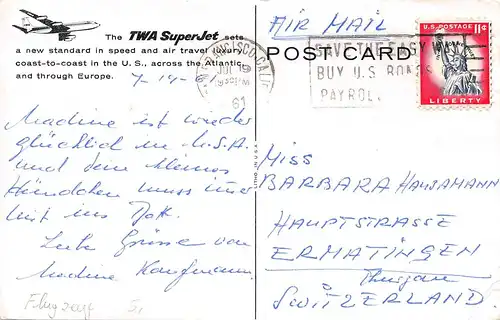 The TWA SuperJet sets
a new standard in speed and air travel luxury
coast-to-coast in the U.S., across the Atlantic
and through Europe.
7-19-61
Madine ist wieder
glücklich in U.S.A
und dem kleines
Hündchen muss immer
mit ins Bett.
Liebe Grüsse von
Madine Kaufmann
Flugzeug
TWA
Air Mail
POST CARD
FRANCISCO, CALIF.
JUL 19
PM
61
BUY U.S. BONDS
PAYROLL
U.S. POSTAGE 11¢
LIBERTY
LITHO. IN U.S.A.
Miss
BARBARA Hausamann
HAUPTSTRASSE
ERMATINGEN
Thurgau
SWITZERLAND.